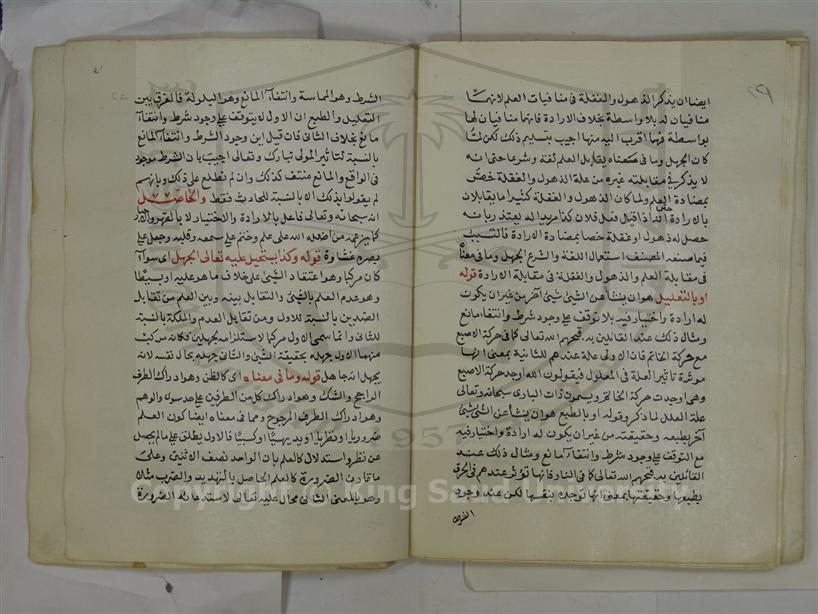 ايضا ان يذكر الذهول والغفلة فى منافيات العلم لانهما
منافيان له بلا واسطة بخلاف الارادة فانهما منافيان لها
بواسطة فهما اقرب اليه منها اجيب بتسليم ذلك لكن لما
كان الجهل وما فى معناه يقابل العلم لغة وشرعا حتى انه
لا يذكر فى مقابلته غيره من علة الذهول والغفلة خص
بمضادة العلم ولما كان الذهول والغفلة كثيرا ما يقابلان
بالارادة حتى اذا قيل فعل فلان كذا مريدا له يعتذر بانه
حصل له ذهول او غفلة خصا بمضادة الارادة فالسبب
فيما صنعه المصنف استعمال اللغة والشرع الجهل وما فى معناه
فى مقابلة العلم والذهول والغفلة فى مقابلة الارادة قوله
او بالتعليل هو ان ينشأ عن الشئ شئ آخر من غير ان يكون
له ارادة واختيار فيه بلا توقف على وجود شرط وانتفاء مانع
ومثال ذلك عند القائلين به قبحهم الله تعالى كما فى حركة الاصبع
مع حركة الخاتم فان الاولى علة عندهم للثانية بمعنى انها
موثرة تاثير العلة فى المعلول فيقولون الله اوجد حركة الاصبع
وهى اوجدت حركة الخاتم ويسمون ذات البارى سبحانه وتعالى
علة العلل لما ذكر وقوله او بالطبع هو ان ينشأ عن الشئ شئ
آخر بطبعه وحقيقته من غير ان يكون له ارادة واختيار فيه
مع التوقف على وجود شرط وانتفاء مانع ومثال ذلك عند
القائلين به قبحهم الله تعالى كما فى النار فانها توثر عندهم فى الحرق
بطبعها وحقيقتها بمعنى انها توجد بنفسها لكن عند وجود
الشرط
الشرط وهو المماسة وانتفاء المانع وهو البلولة فالفرق بين
التعليل والطبع ان الاول لا يتوقف على وجود شرط وانتفاء
مانع بخلاف الثانى فان قيل اين وجود الشرط وانتفاء المانع
بالنسبة لتاثير المولى تبارك وتعالى اجيب بان الشرط موجود
فى الواقع والمانع منتف كذلك وان لم نطلع على ذلك وبانهم
لم يقولوا بذلك الا بالنسبة للحادث فقط والحاصل
انه سبحانه وتعالى فاعل بالارادة والاختيار لا بالقهر والجبر
كما يزعمه من اضله الله على علم وختم على سمعه وقلبه وجعل على
بصره غشاوة قوله وكذا يستحيل عليه تعالى الجهل اى سواء
كان مركبا وهو اعتقاد الشئ على خلاف ما هو عليه او بسيطا
وهو عدم العلم بالشئ والتقابل بينه وبين العلم من تقابل
الضدين بالنسبة للاول ومن تقابل العدم والملكة بالنسبة
للثانى وانما سمى الاول مركبا لاستلزامه لجهلين فكانه مركب
منهما الاول جهله بحقيقة الشئ والثانى جهله بحال نفسه لانه
يجهل انه جاهل قوله وما فى معناه اى كالظن وهو ادراك الطرف
الراجح والشك وهو ادراك كل من الطرفين على حد سواء والوهم
وهو ادراك الطرف المرجوح وما فى معناه ايضا كون العلم
ضروريا او نظريا او بديهيا او كسبيا فالاول يطلق على ما لم يحصل
عن نظر واستدلال كالعلم بان الواحد نصف الاثنين وعلى
ما قارن الضرورة كالعلم الحاصل بالتهديد والضرب مثلا
وهو بالمعنى الثانى محال عليه تعالى لاستدعائه الضرورة
Copyright © King Saud University
1957